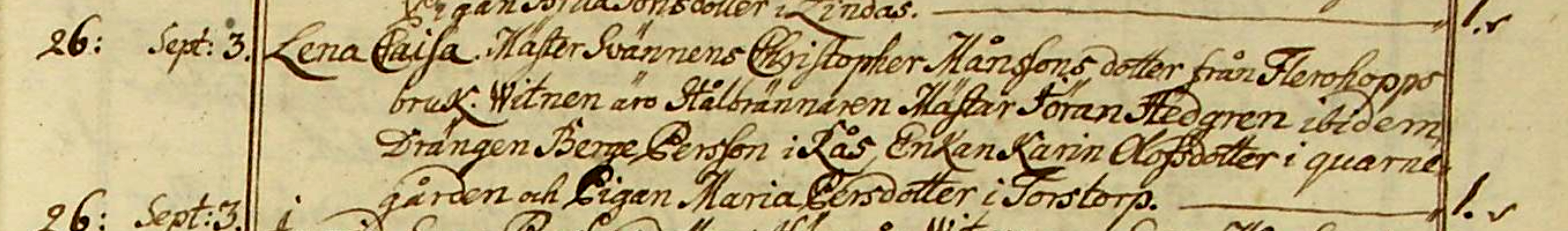 Pigan Brita Jonsdotter i Lindås. 1.
26: Sept: 3. Lena Caisa. Mäster Svännens Christopher Månssons dotter från Flerohopps
bruk. Witnen äro Stålbrännaren Mästar Jöran Hedgren ibidem
Drängen Berge Persson i Rås, Enkan Karin Olofsdotter i quarne-
gården och Pigan Maria Persdotter i Torstorp. 1.
26: Sept: 3.